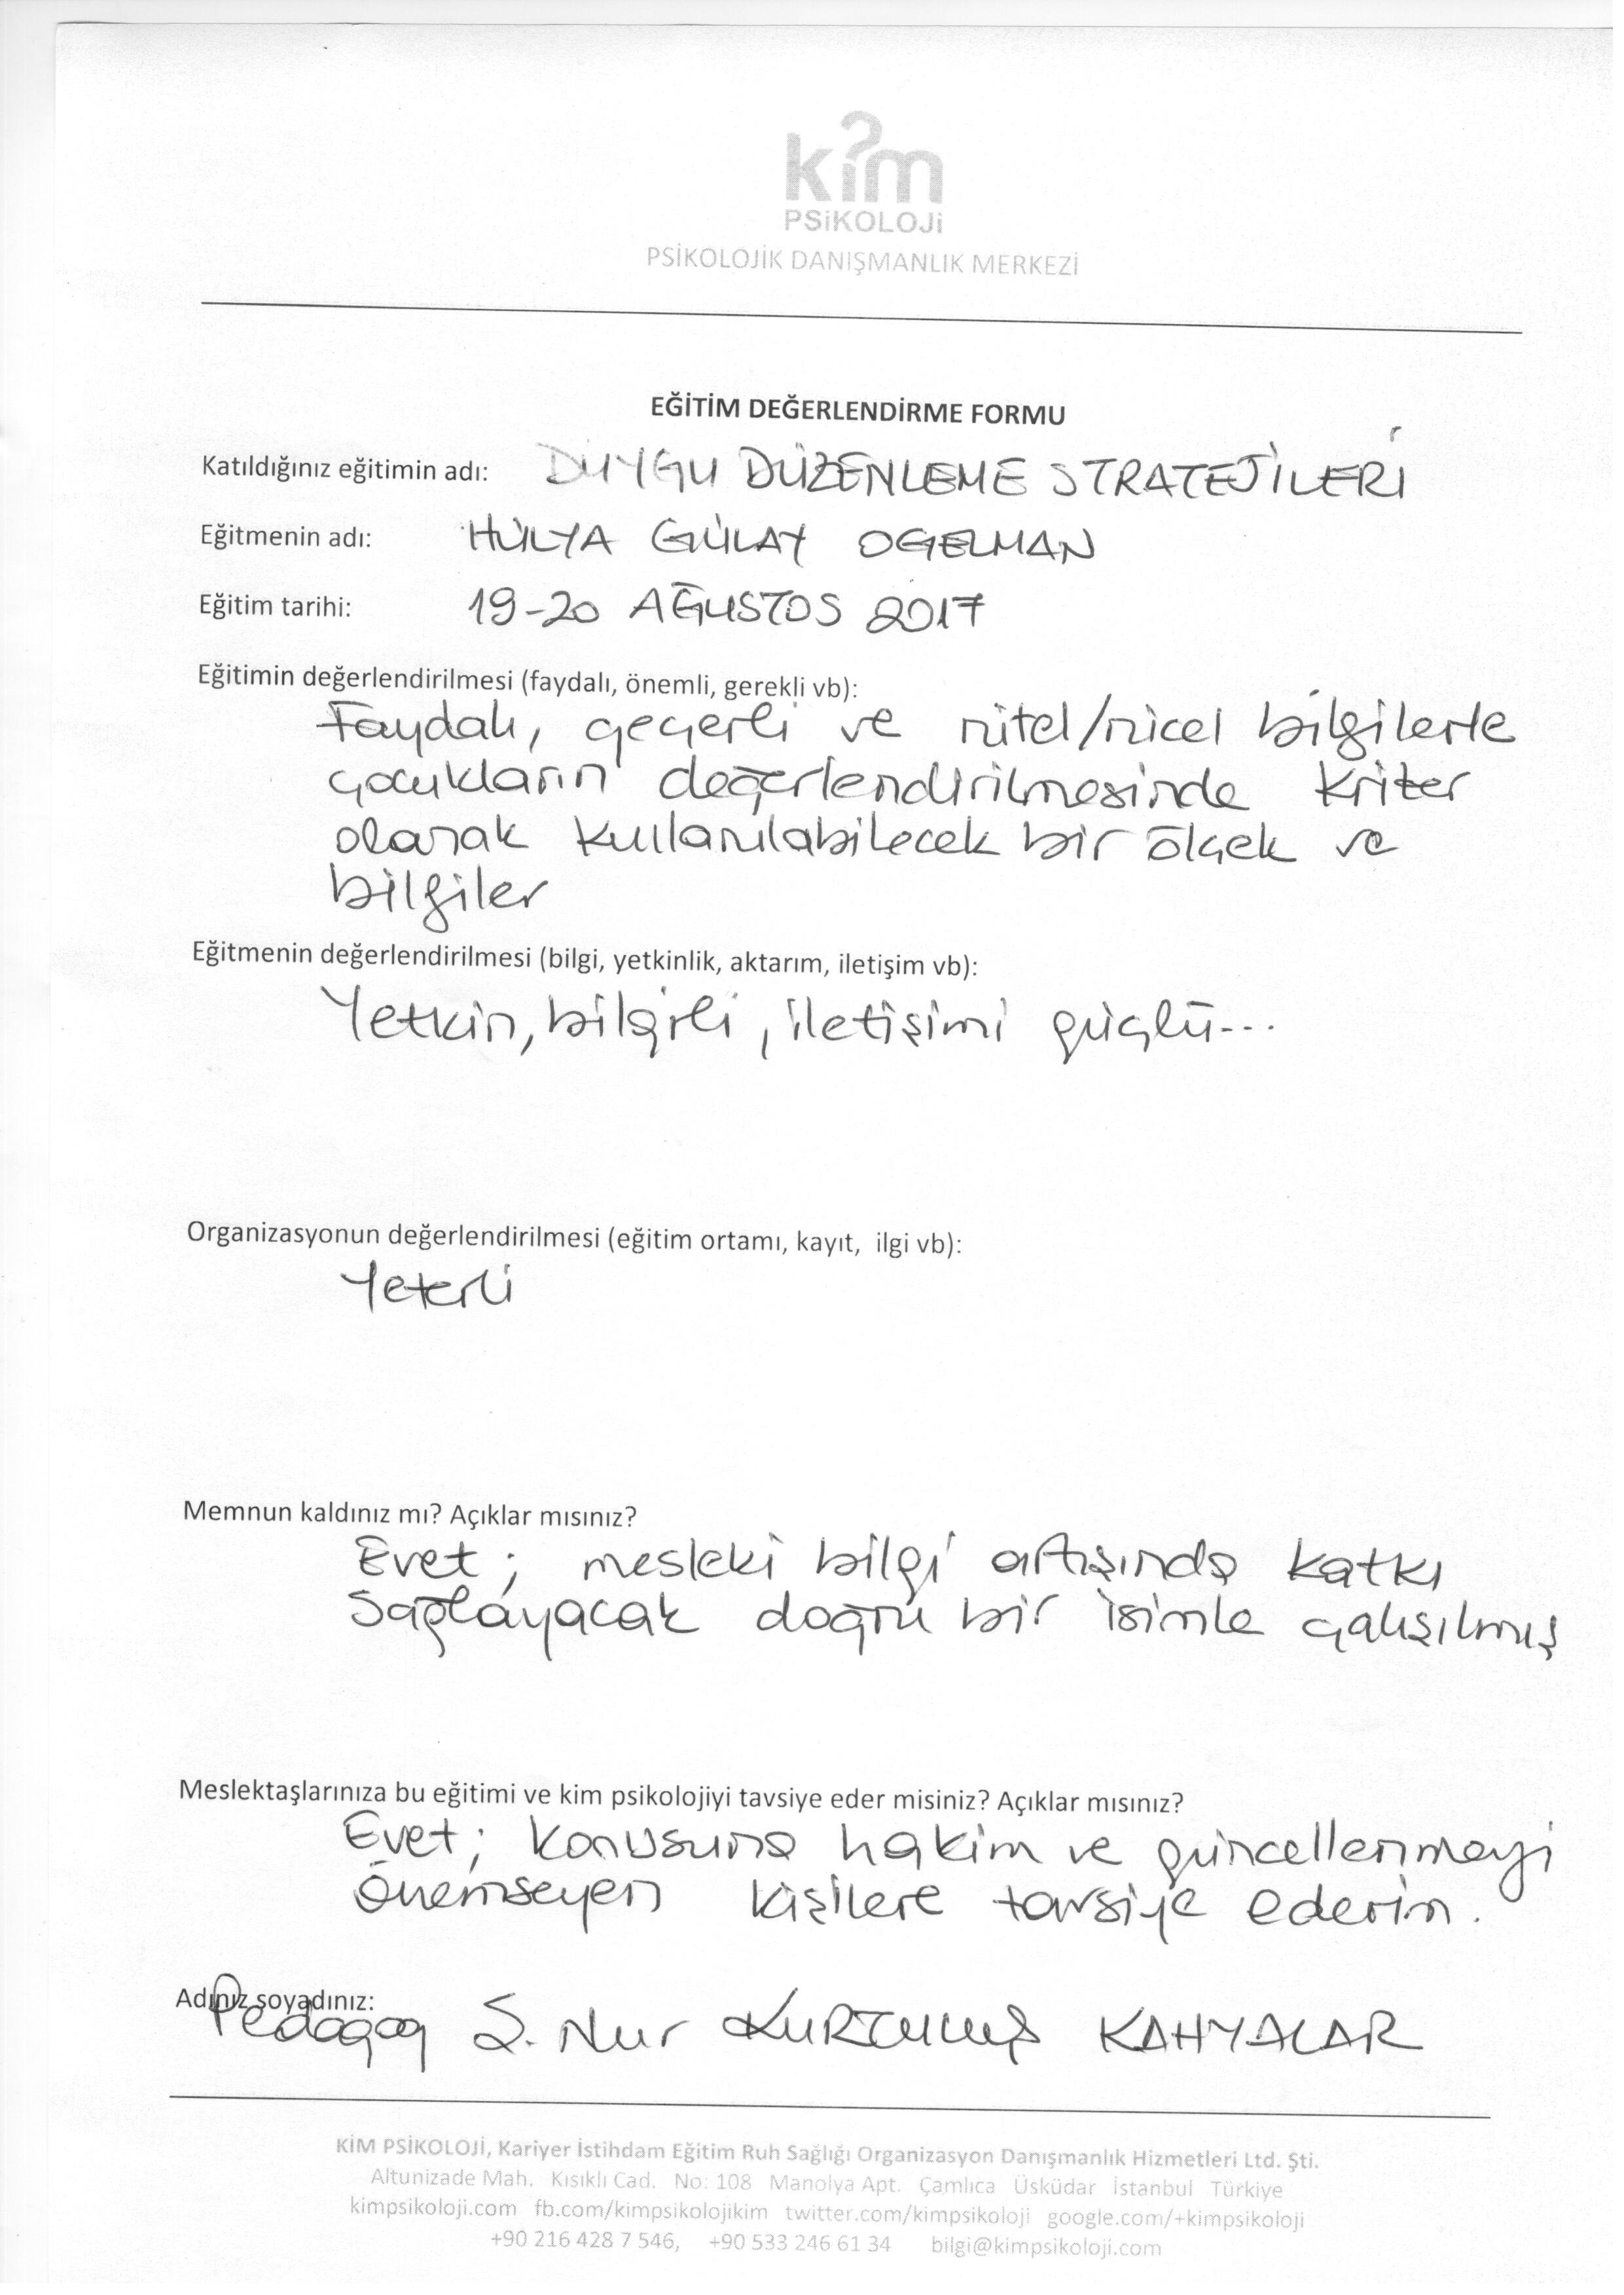 kim
PSiKOLOJi
PSİKOLOJİK DANIŞMANLIK MERKEZİ
EĞİTİM DEĞERLENDİRME FORMU
Katıldığınız eğitimin adı: DUYGU DÜZENLEME STRATEJİLERİ
Eğitmenin adı: HÜLYA GÜLAY OGELMAN
Eğitim tarihi: 19-20 AĞUSTOS 2017
Eğitimin değerlendirilmesi (faydalı, önemli, gerekli vb):
Faydalı, geçerli ve nitel/nicel bilgilerle
çocukların değerlendirilmesinde kriter
olarak kullanılabilecek bir ölçek ve
bilgiler
Eğitmenin değerlendirilmesi (bilgi, yetkinlik, aktarım, iletişim vb):
Yetkin, bilgili, iletişimi güçlü...
Organizasyonun değerlendirilmesi (eğitim ortamı, kayıt, ilgi vb):
Yeterli
Memnun kaldınız mı? Açıklar mısınız?
Evet; mesleki bilgi artışında katkı
sağlayacak doğru bir isimle çalışılmış
Meslektaşlarınıza bu eğitimi ve kim psikolojiyi tavsiye eder misiniz? Açıklar mısınız?
Evet; konusuna hakim ve güncellenmeyi
önemseyen kişilere tavsiye ederim.
Adınız soyadınız:
Pedagog S. Nur KURTULUŞ KAHYALAR
KİM PSİKOLOJİ, Kariyer İstihdam Eğitim Ruh Sağlığı Organizasyon Danışmanlık Hizmetleri Ltd. Şti.
Altunizade Mah. Kısıklı Cad. No: 108 Manolya Apt. Çamlıca Üsküdar İstanbul Türkiye
kimpsikoloji.com fb.com/kimpsikolojikim twitter.com/kimpsikoloji google.com/+kimpsikoloji
+90 216 428 7 546, +90 533 246 61 34 bilgi@kimpsikoloji.com